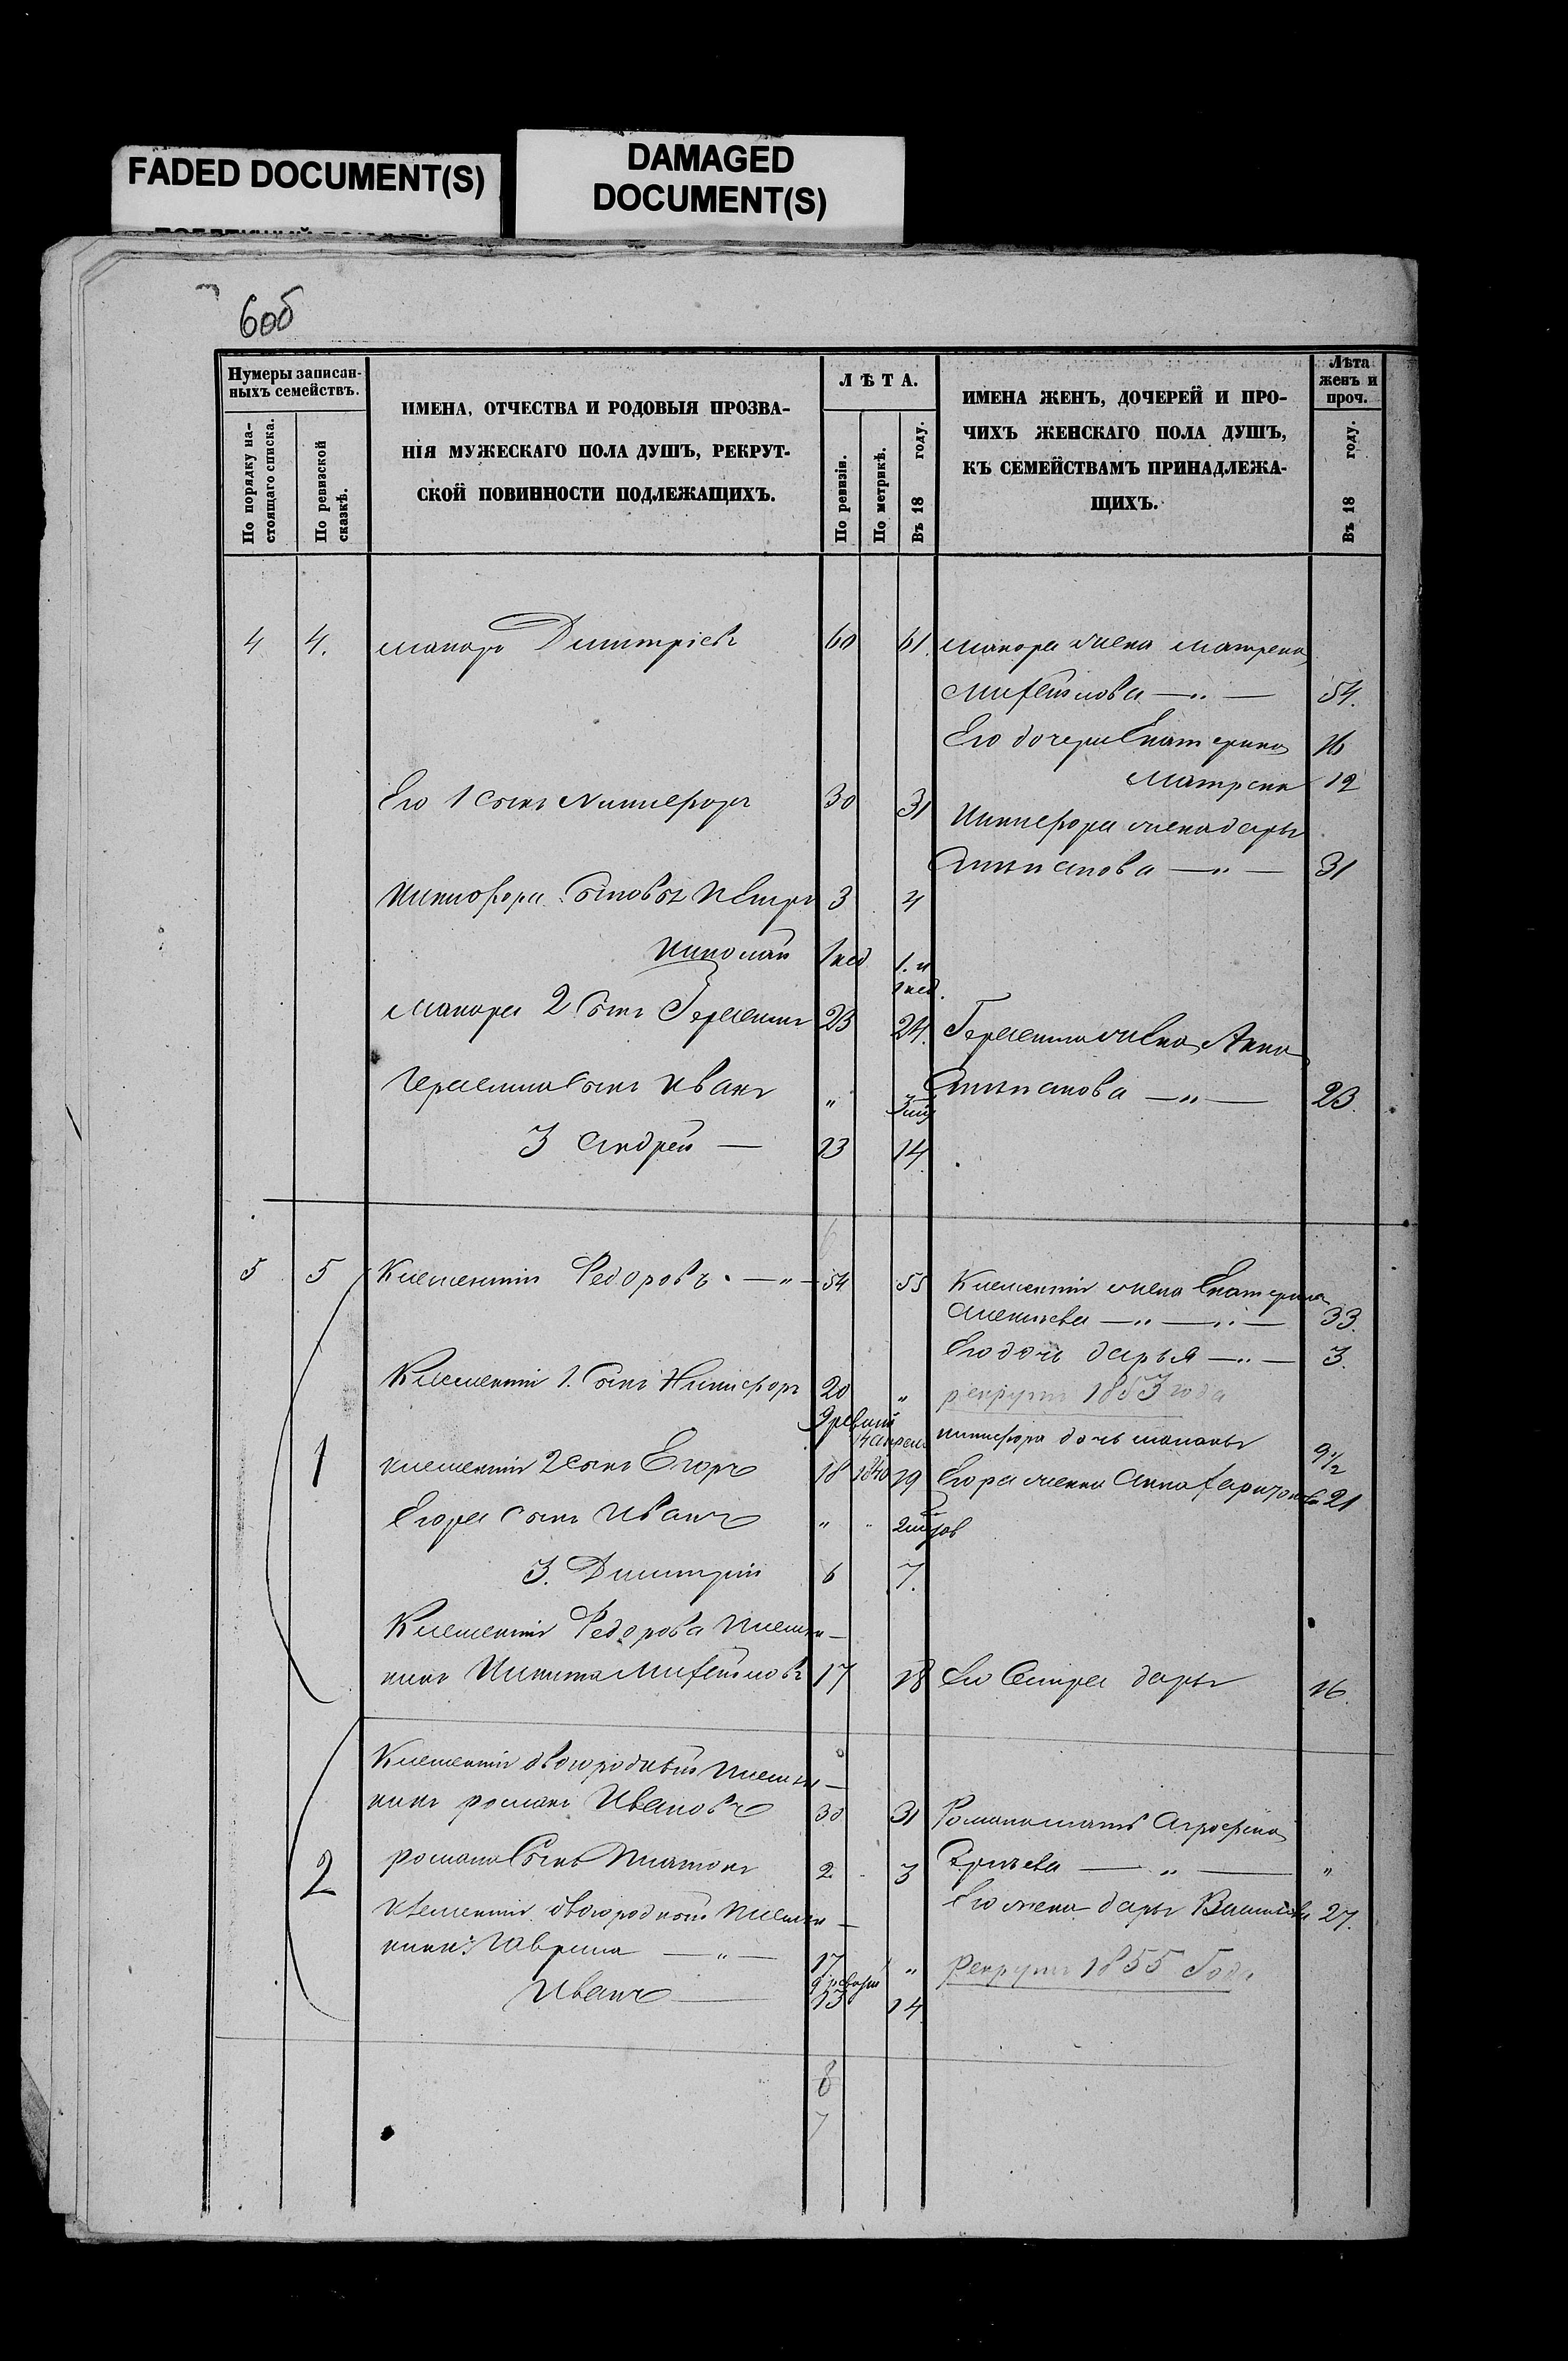 FADED DOCUMENT(S)
DAMAGED
DOCUMENT(S)
6об
Нумеры записан-
ныхъ семействъ.
По порядку на-
стоящаго списка.
По ревизской
сказкѣ.
ИМЕНА, ОТЧЕСТВА И РОДОВЫЯ ПРОЗВА-
НІЯ МУЖЕСКАГО ПОЛА ДУШЪ, РЕКРУТ-
СКОЙ ПОВИННОСТИ ПОДЛЕЖАЩИХЪ.
ЛѢТА.
По ревизіи.
По метрикѣ.
Въ 18 году.
ИМЕНА ЖЕНЪ, ДОЧЕРЕЙ И ПРО-
ЧИХЪ ЖЕНСКАГО ПОЛА ДУШЪ,
КЪ СЕМЕЙСТВАМЪ ПРИНАДЛЕЖА-
ЩИХЪ.
Лѣта
женъ и
проч.
Въ 18 году.
4 4. Макаръ Димитріевъ 60 61. Макара жена Матрена
Михайлова —"— 54.
Его дочери Екатерина 16
Матрена 12
Его 1 сынъ Никифоръ 30 31
Никифора жена дарья
Антипова —"— 31
Никифора сыновья Петръ 3 4
Николай 1 нед 1. и
1 нед.
Макара 2 сынъ Герасимъ 23 24. Герасима жена Анна
Герасима сынъ Иванъ " Антипова —"— 23.
3 Андрей — 13 14.
5 5 Климентій Федоровъ. —"— 54 55 Климентія жена Екатерина
Алексѣева —"—"— 33.
Его дочь дарья —"— 3.
Климентія 1. сынъ Никифоръ 20 " рекрутъ 1853 года
Никифора дочь 9½
1 Климентія 2 сынъ Егоръ 18 1840 19 Егора жена Анна Харитонова 21
Егора сынъ Иванъ " "
3. Димитрій 6 7.
Климентія Федорова племян-
никъ Никита Михайловъ 17 18 Его сестра дарья 16.
Климентія двоюродный племян-
никъ романъ Ивановъ 30 31 Романа мать Агрофена
2 романа сынъ Платонъ 2 3 —"— "
Его жена дарья Васильева 27.
Климентія двоюродной племян-
никъ: Гаврила —"— 17 " Рекрутъ 1855 Года
Иванъ — 13 14
8
7